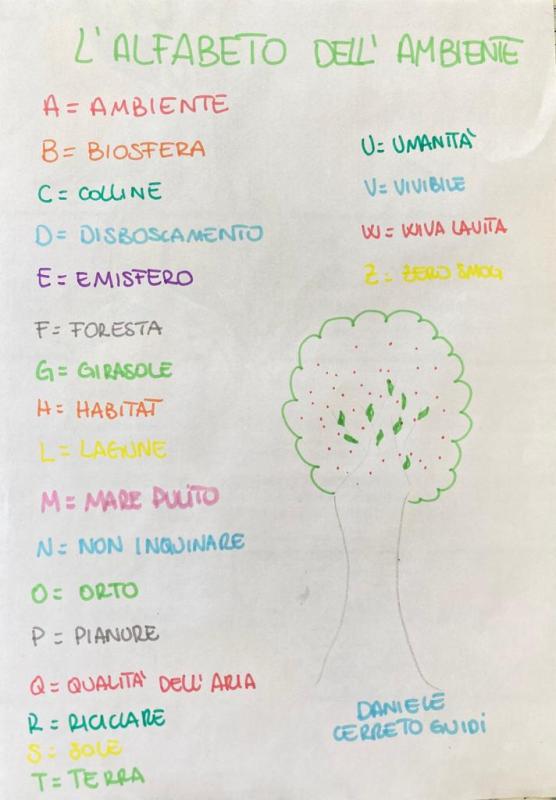 L'ALFABETO DELL'AMBIENTE
A = AMBIENTE
B = BIOSFERA
C = COLLINE
D = DISBOSCAMENTO
E = EMISFERO
F = FORESTA
G = GIRASOLE
H = HABITAT
L = LAGUNE
M = MARE PULITO
N = NON INQUINARE
O = ORTO
P = PIANURE
Q = QUALITA' DELL'ARIA
R = RICICLARE
S = SOLE
T = TERRA
U = UMANITA'
V = VIVIBILE
W = WIVA LA VITA
Z = ZERO SMOG
DANIELE
CERRETO GUIDI